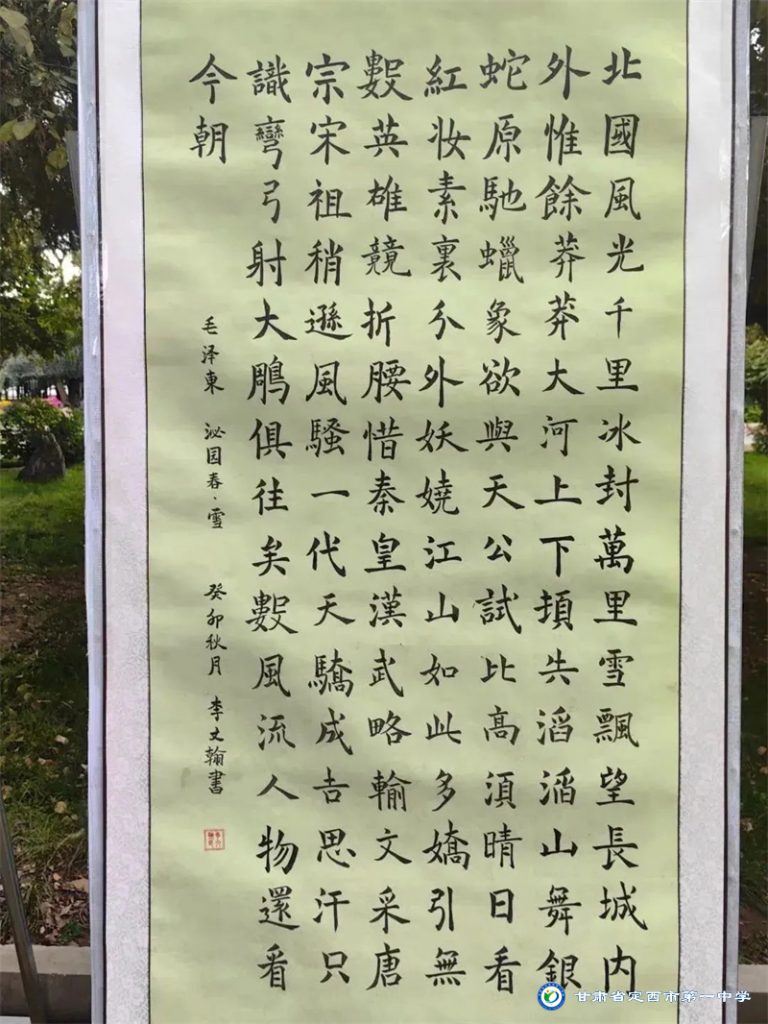 北國風光千里冰封萬里雪飄望長城内
外惟餘莽莽大河上下頓失滔滔山舞銀
蛇原馳蠟象欲與天公試比高須晴日看
紅妆素裏分外妖嬈江山如此多嬌引無
數英雄競折腰惜秦皇漢武略輸文采唐
宗宋祖稍遜風騷一代天驕成吉思汗只
識彎弓射大鵰俱往矣數風流人物還看
今朝
毛泽東 沁园春·雪 癸卯秋月 李文翰書
甘肃省定西市第一中学